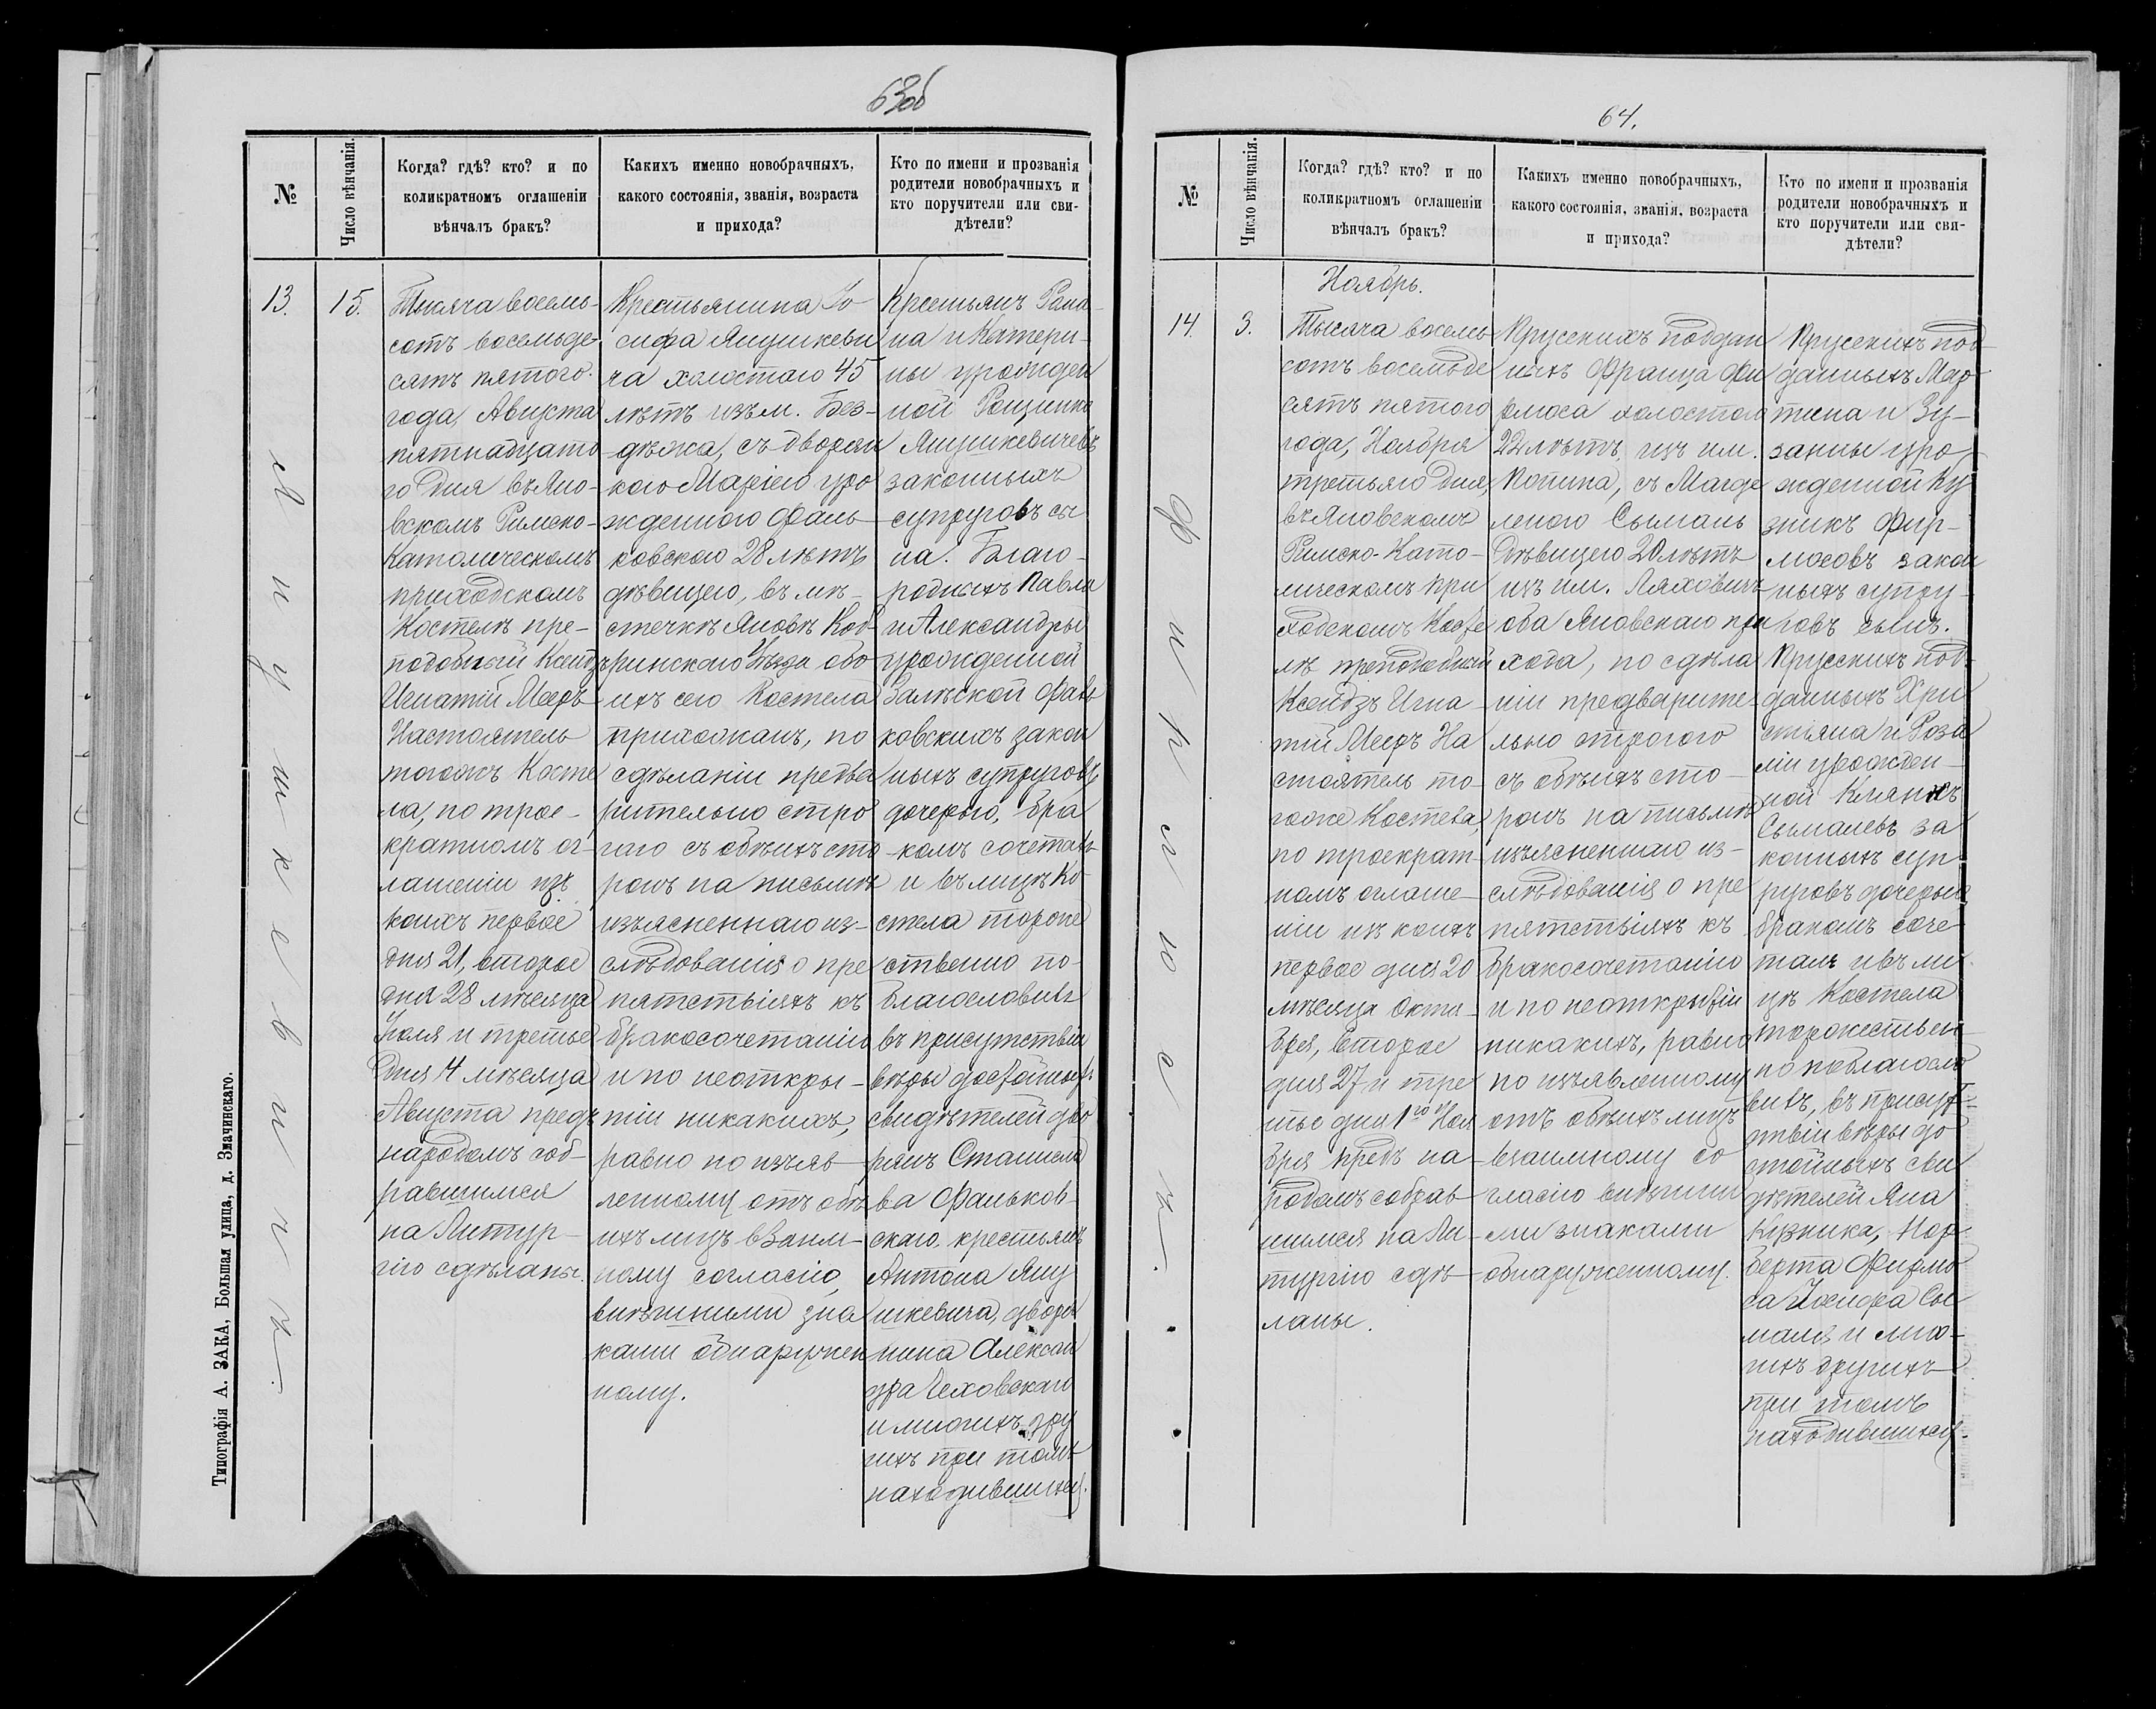 63об
№
Число вѣнчанія.
Когда? гдѣ? кто? и по
коликратномъ оглашеніи
вѣнчалъ бракъ?
Какихъ именно новобрачныхъ,
какого состоянія, званія, возраста
и прихода?
Кто по имени и прозванія
родители новобрачныхъ и
кто поручители или сви-
дѣтели?
13.
15.
Янушкевичъ.
Тысяча восемь-
сотъ восемьде-
сятъ пятого
года, Августа
пятнадцато
го дня въ Яно-
вскомъ Римско-
Католическомъ
приходскомъ
Костелѣ пре-
подобный Ксендзъ
Игнатій Мееръ
Настоятель
тогожъ Косте
ла, по трое-
кратномъ ог-
лашеніи изъ
коихъ первое
дня 21, второе
дня 28 мѣсяца
Іюля и третье
дня 4 мѣсяца
Августа предъ
народомъ соб-
равшимся
на Литур-
гію сдѣланы.
Крестьянина Іо-
сифа Янушкеви
ча холостаго 45
лѣтъ изъ им. Без-
дѣжа, съ дворян
кою Маріею уро
жденною Фань
ковскою 28 лѣтъ
дѣвицею, въ мѣ-
стечкѣ Яновѣ Коб-
ринскаго Уѣзда обо
ихъ сего Костела
прихожанъ, по
сдѣланіи предва
рительно стро
гаго съ обѣихъ сто
ронъ на письмѣ
изъясненнаго из-
слѣдованія о пре
пятствіяхъ къ
бракосочетанію
и по неоткры-
тіи никакихъ,
равно по изъяв-
ленному отъ обѣ
ихъ лицъ взаим-
ному согласію,
внѣшними зна
ками обнаружен
ному.
Крестьянъ Рома-
на и Катери-
ны урожден
ной Рощенко
Янушкевичевъ
законныхъ
супруговъ сы
на. Благо-
родныхъ Павла
и Александры
урожденной
Залѣской Фань
ковскихъ закон
ныхъ супруговъ
дочерью, бра
комъ сочеталъ
и въ лицѣ Ко-
стела торже
ственно по-
благословилъ
въ присутствіи
вѣры достойныхъ
свидѣтелей дво
рянъ Станисла
ва Фаньков-
скаго, крестьянъ
Антона Яну
шкевича, дворя
нина Алексан
дра Чеховскаго
и многихъ дру
гихъ при томъ
находившихся.
Типографія А. ЗАКА, Большая улица, д. Значинскаго.
64.
№
Число вѣнчанія.
Когда? гдѣ? кто? и по
коликратномъ оглашеніи
вѣнчалъ бракъ?
Какихъ именно новобрачныхъ,
какого состоянія, званія, возраста
и прихода?
Кто по имени и прозванія
родители новобрачныхъ и
кто поручители или сви-
дѣтели?
Ноябрь.
14.
3.
Тысяча восемь
сотъ восемьде
сятъ пятого
года, Ноября
третьяго дня,
въ Яновскомъ
Римско-Като-
лическомъ при
ходскомъ Косте
лѣ преподобный
Ксендзъ Игна
тій Мееръ На
стоятель то-
гоже Костела,
по троекрат-
номъ оглаше-
ніи изъ коихъ
первое дня 20
мѣсяца Октя-
бря, второе
дня 27 и тре
тье дня 1го Ноя
бря предъ на-
родомъ собрав
шимся на Ли-
тургію сдѣ-
ланы.
Прусскихъ поддан
ныхъ Франца Фи
рмоса холостого
22 лѣтъ, изъ им.
Попина, съ Магде
леною Сымань
дѣвицею 20 лѣтъ
изъ им. Ляховичъ
оба Яновскаго при
хода, по сдѣла
ніи предварите-
льно строгого
съ обѣихъ сто-
ронъ на письмѣ
изъясненнаго из-
слѣдованія о пре
пятствіяхъ къ
бракосочетанію
и по неоткрытіи
никакихъ, равно
по изъявленному
отъ обѣихъ лицъ
взаимному со
гласію внѣшни
ми знаками
обнаруженному.
Прусскихъ под
данныхъ Мар
тина и Зу-
занны уро-
жденной Ку
зникъ Фир-
мосовъ закон
ныхъ супру-
говъ сынъ.
Прусскихъ под
данныхъ Хри
стьяна и Роза
ліи урожден-
ной
Сымаевъ за
конныхъ суп
руговъ дочерью
бракомъ соче
талъ и въ ли
цѣ Костела
торжествен
но поблагосло
вилъ, въ присут-
ствіи вѣры до
стойныхъ сви
дѣтелей Яна
Кузника, Нор-
берта Фирмо
са Іосифа Сы
маня и мно-
гихъ другихъ
при томъ
находившихся.